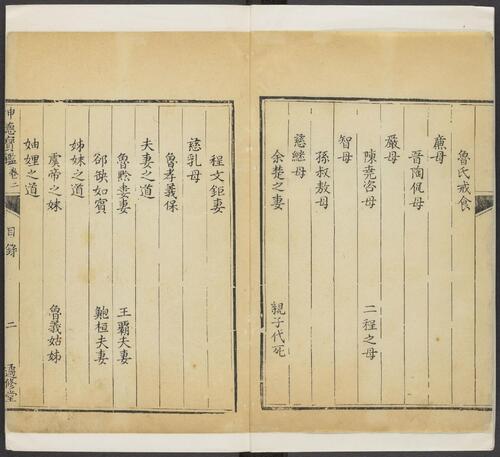 魯氏戒食
廉母
晉陶侃母
嚴母
陳堯咨母 二程之母
智母
孫叔敖母
慈繼母
余楚之妻 親子代死
程文鉅妻
慈乳母
魯孝義保
夫妻之道
魯黔婁妻 王霸夫妻
郤缺如賓 鮑桓夫妻
姊妹之道
虞帝之妹 魯義姑姊
妯娌之道
坤德寶鑑 卷二 目錄 二 遵修堂